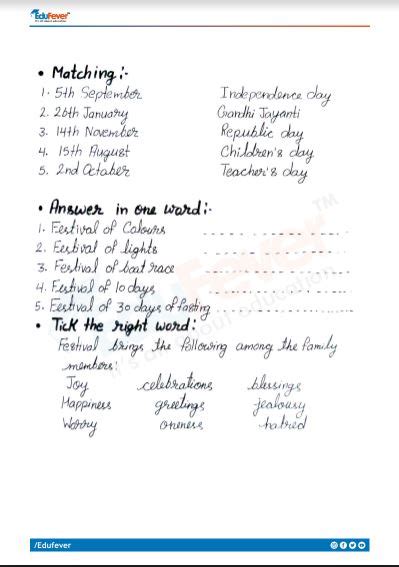 EduFever
It's all about education
• Matching:-
1. 5th September Independence day
2. 26th January Gandhi Jayanti
3. 14th November Republic day
4. 15th August Children's day
5. 2nd October Teacher's day
• Answer in one word:-
1. Festival of Colours
2. Festival of lights
3. Festival of boat race
4. Festival of 10 days
5. Festival of 30 days of fasting
• Tick the right word:
Festival brings the following among the family
members:
Joy celebrations blessings
Happiness greetings jealousy
Worry oneness hatred
EduFever TM
It's all about education
/Edufever